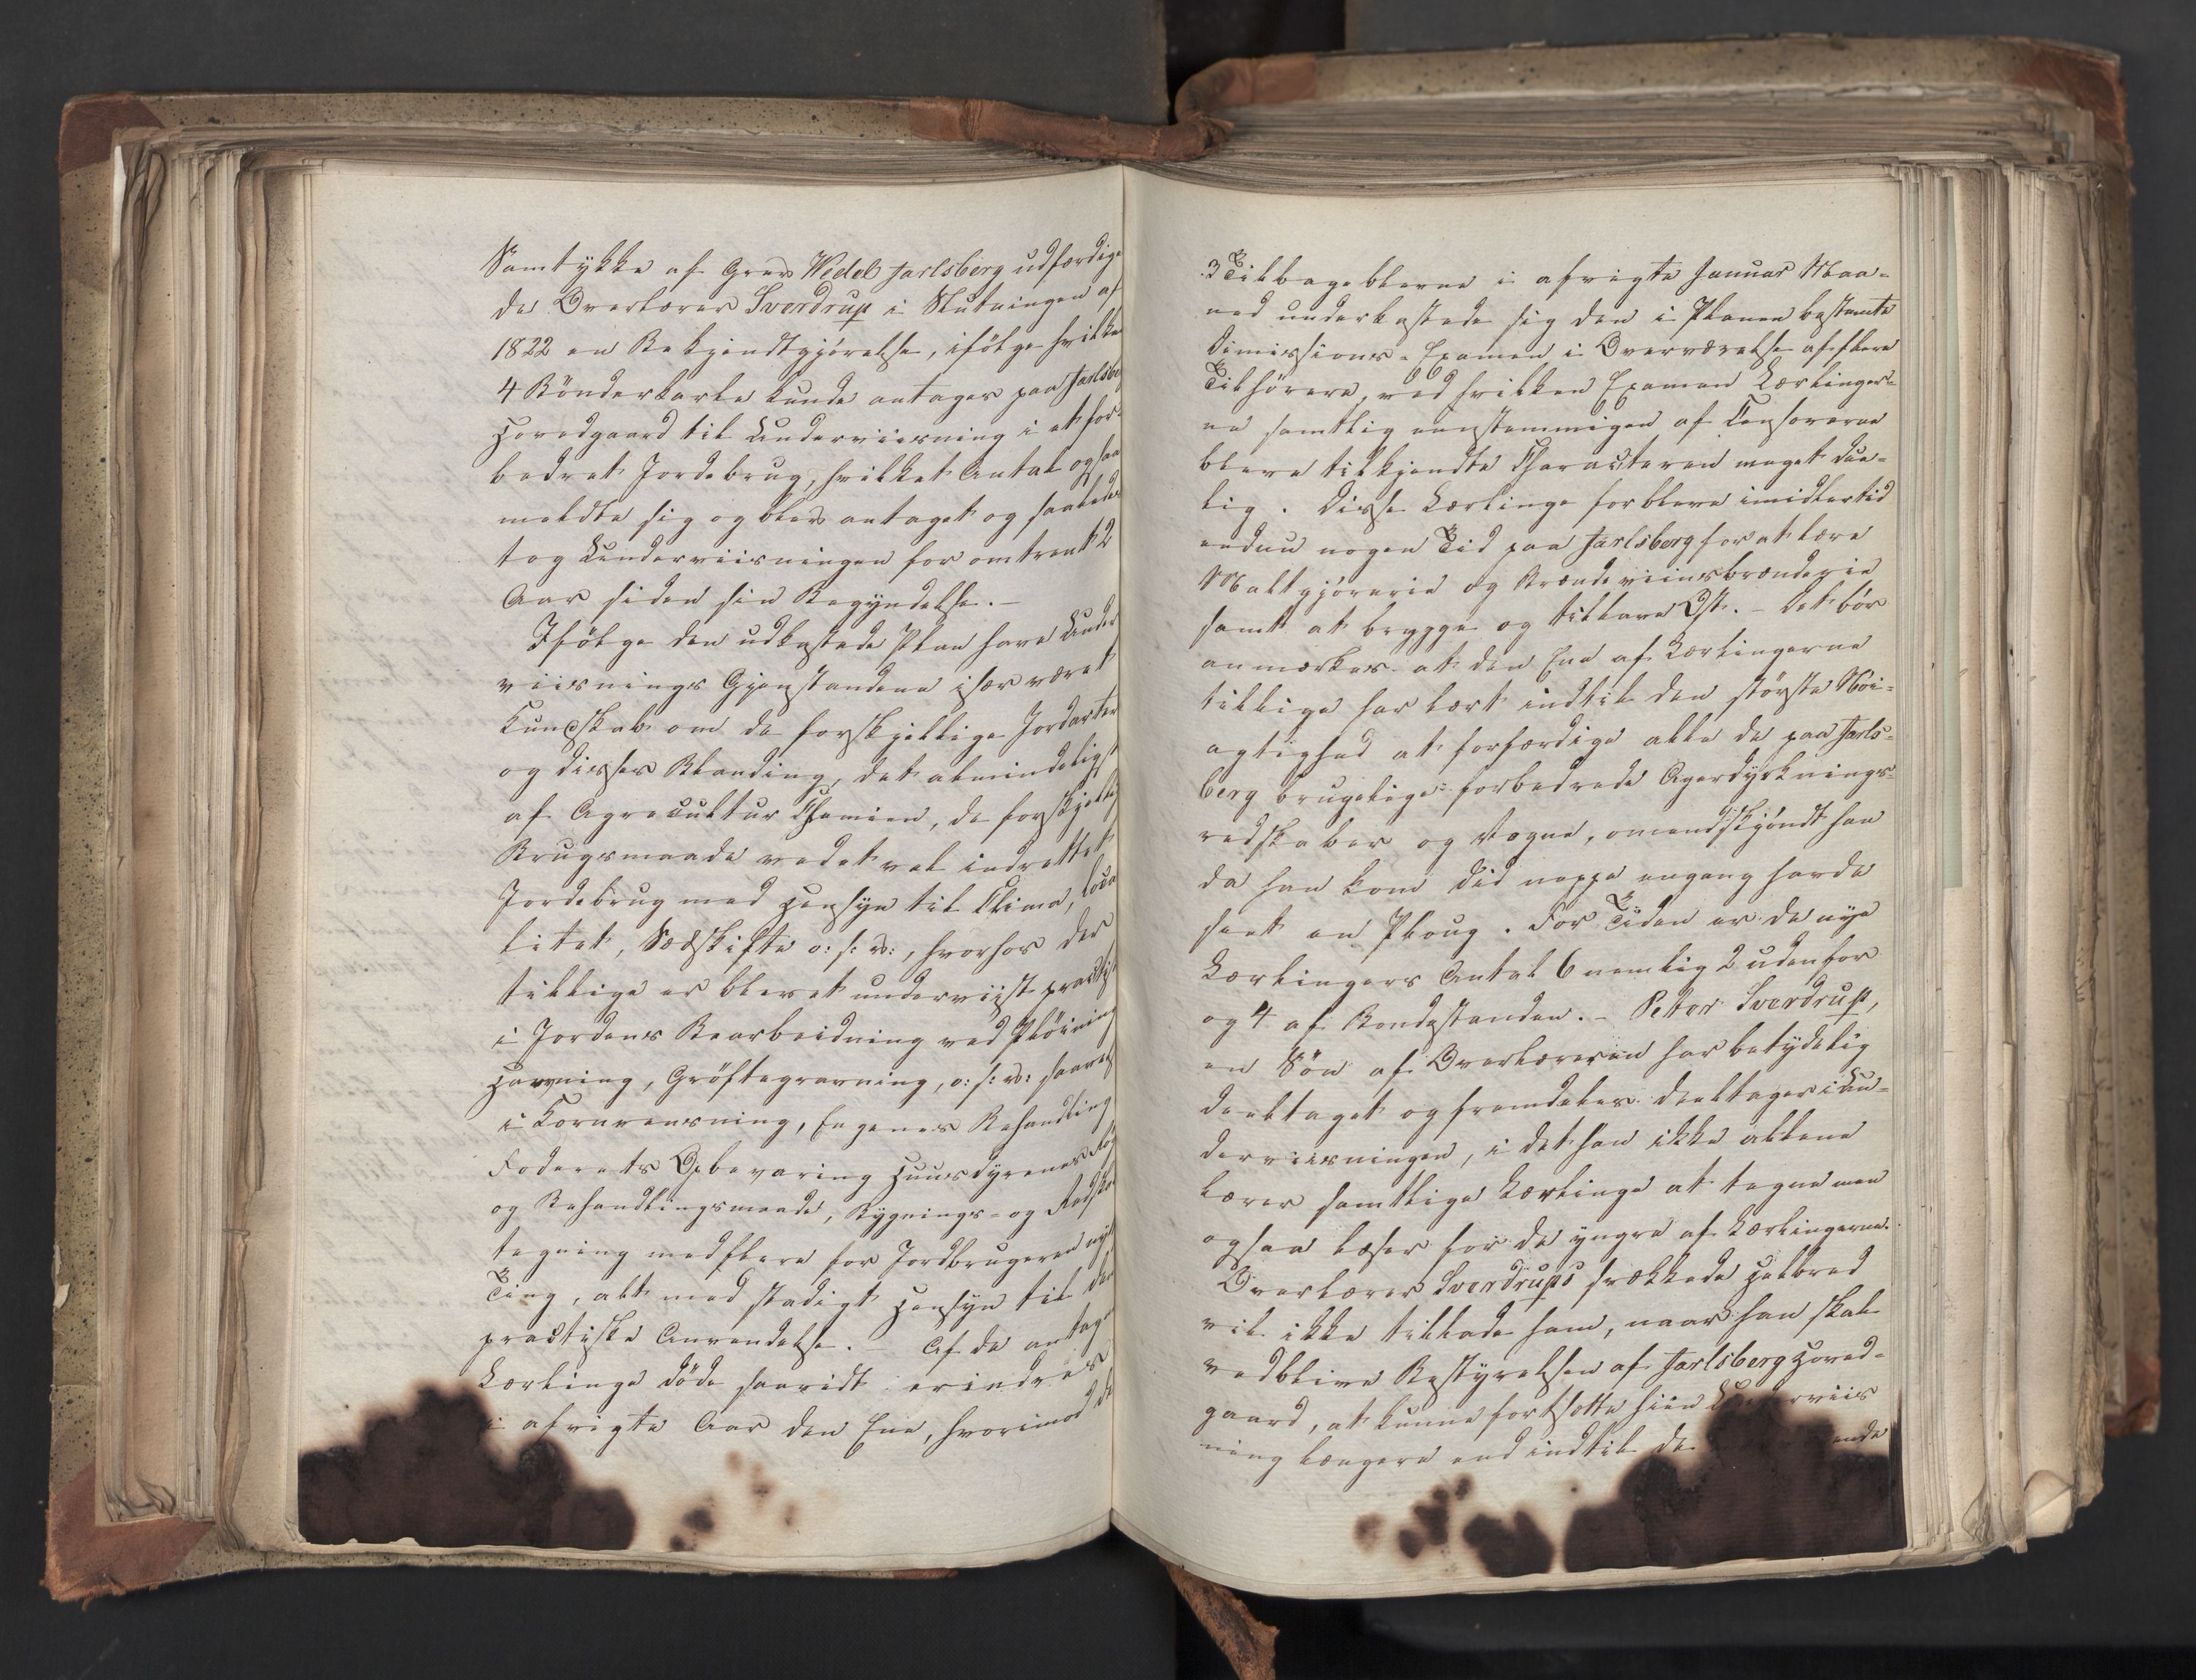 Samtykke af Grev Wedel Jarlsberg udfærdige
de Overlærer Sverdrup i Slutningen af
1822 en Bekjendtgjörelse, ifölge hvilken
4 Bönderkarle kunde antages paa Jarlsbe
Hovedgaard til Underviisning i et for-
bedret Jordebrug, hvilket Antal ogsaa
meldte sig og blev antaget og saaledes
tog Underviisningen for omtrent 2
Aar siden sin Begyndelse. –
Ifölge den udkastede Plan have Under
viisnings Gjenstandene især været
Kundskab om de forskjellige Jordarter
og disses Blanding, det almindeligst
af Agrecultur Chemien, de forskjellig
Brugsmaade ved et vel indrettet
Jordebrug med Hensyn til Clima, loca
litet, Sædskifte o: s: v:, hvorhos der
tillige er blevet underviist practisk
i Jordens Bearbeidning ved Plöining
Harvning, Gröftegravning, o: s: v: saavel
i Kornrensning, Engenes Behandling
Foderets Opbevaring Huusdyrenes
og Behandlingsmaade, Bygnings- og Redska
tegning med flere for Jordbrugeren nyt
Ting, alt med stadigt Hensyn til den
practiske Anvendelse. – Af de antag
Lærlinge döde saavidt erindres
i afvigte Aar den Ene, hvorimod de
3 Tilbageblevne i afvigte Januar Maa-
ned underkastede sig den i Planen bestemte
Dimissions-Examen i Overværelse af flere
Tilhörere, ved hvilken Examen Lærlinger-
ne samtlig eenstemmigen af Censorerne
bleve tilkjendte Characteren meget due-
lig. Disse Lærlinge forbleve imidlertid
endnu nogen Tid paa Jarlsberg for at lære
Maltgjöreri og Brændeviinsbrænderie
samt at brygge og tillave Ost. – Det bör
anmærkes at den Ene af Lærlingerne
tillige har lært indtil den störste Nöi-
agtighed at forfærdige alle de paa Jarls-
berg brugelige forbedrede Agerdyrknings-
redskaber og Vogne, omendskjöndt han
da han kom did neppe engang havde
seet en Ploug. For Tiden er de nye
Lærlingers Antal 6 nemlig 2 udenfor
og 4 af Bondestanden. – Peter Sverdrup,
en Sön af Overlæreren har betydelig
deeltaget og fremdeles deeltager i Un-
derviisningen, i det han ikke allene
lærer samtlige Lærlinge at tegne men
ogsaa læser for de yngre af Lærlingerne.
Overlærer Sverdrups svækkede Helbred
vil ikke tillade ham, naar han skal
vedblive Bestyrelsen af Jarlsberg Hoved-
gaard, at kunne fortsætte hiin Underviis
ning længere end indtil de ende